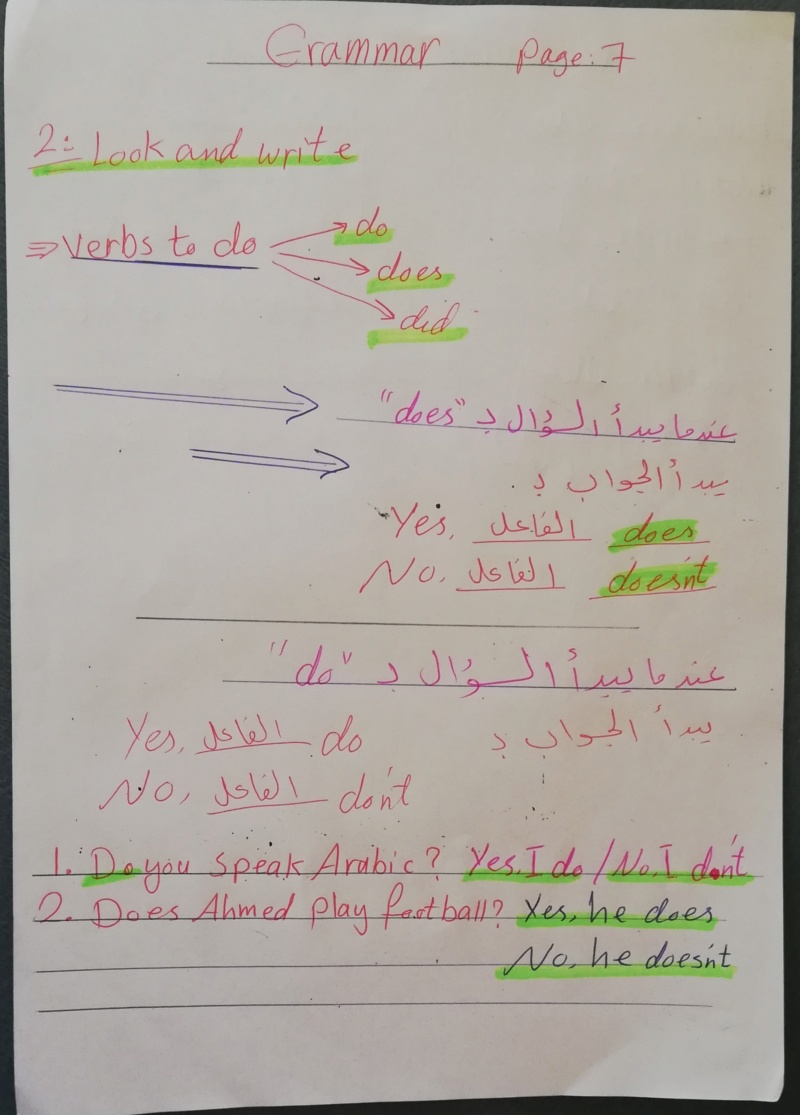 Grammar Page: 7
2: Look and write
⇒ Verbs to do → do
→ does
→ did
عندما يبدأ السؤال بـ "does"
يبدأ الجواب بـ
Yes, الفاعل does
No, الفاعل doesn't
عندما يبدأ السؤال بـ "do"
يبدأ الجواب بـ
Yes, الفاعل do
No, الفاعل don't
1. Do you speak Arabic? Yes, I do / No, I don't
2. Does Ahmed play football? Yes, he does
No, he doesn't